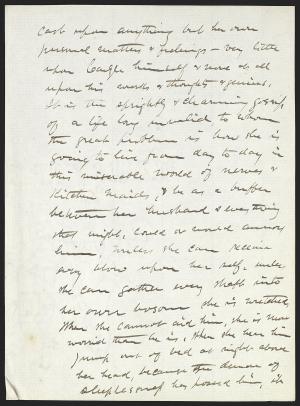 cast upon anything but her own
personal matters & feelings – very little
upon Carlyle himself & none at all
upon his works & thoughts & genius.
It is the sprightly & charming gossip
of a life long invalid to whom
the great problem is how she is
going to live from day to day in
this miserable world of nerves &
Kitchen maids, & be as a buffer
between her husband & everything
that might, could or would annoy
him. Unless she can receive
every blow upon her self, unless
she can gather every shaft into
her own bosom she is wretched.
When she cannot aid him, she is more
worried than he is; then she hears him
jump out of bed at night above
her head, because the demon of
sleeplessness has posessed him, it